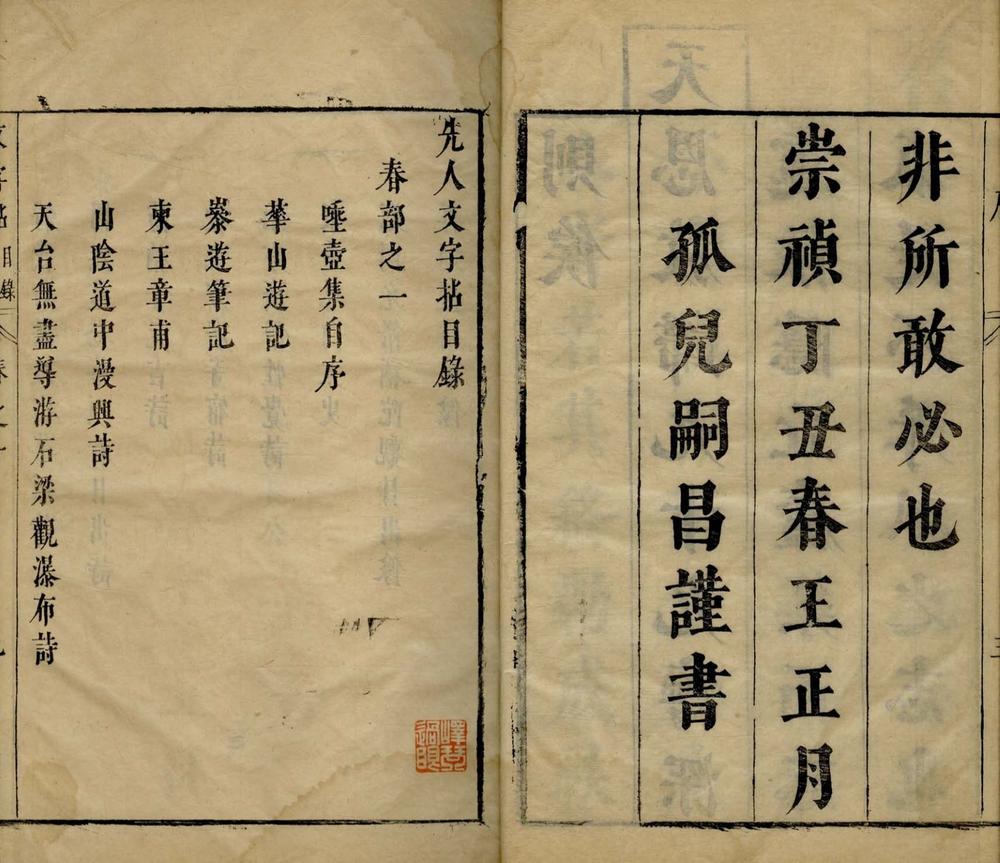 非所敢必也
崇禎丁丑春王正月
孤兒嗣昌謹書
先人文字拈目錄
春部之一
唾壺集自序
華山遊記
泰遊筆記
柬王章甫
山陰道中漫興詩
天台無盡導游石梁觀瀑布詩